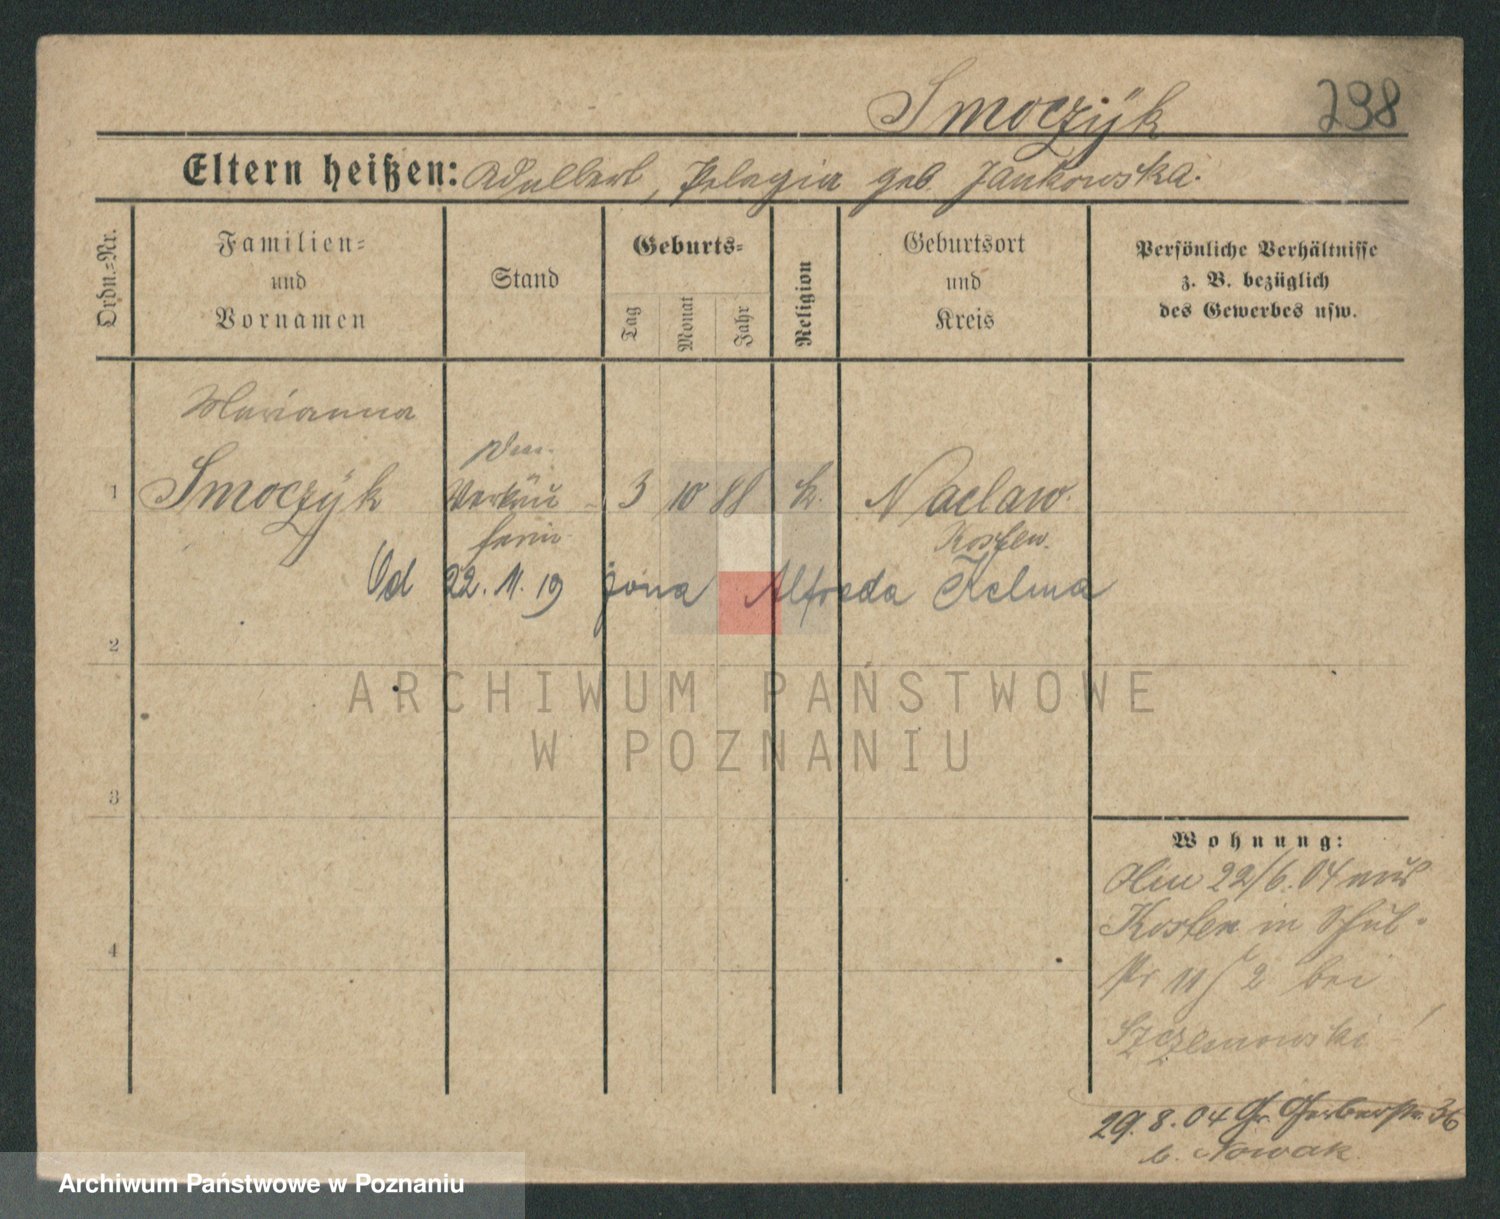 Smoczÿk 238
Eltern heißen: Adalbert, Pelagia geb. Jankowska.
Ordn.=Nr.
Familien=
und
Vornamen
Stand
Geburts=
Tag
Monat
Jahr
Religion
Geburtsort
und
Kreis
Persönliche Verhältnisse
z. B. bezüglich
des Gewerbes usw.
Marianna
1 Smoczÿk Verkäu 3 10 88 k. Naclaw.
ferin Kosten.
Od 22.11.19 żona Alfreda Kelma
2
3
4
Wohnung:
22/6.04 aus
Kosten in
11/2 bei
29.8.04 Gr. Gerberstr. 36
b. Nowak
ARCHIWUM PAŃSTWOWE
W POZNANIU
Archiwum Państwowe w Poznaniu